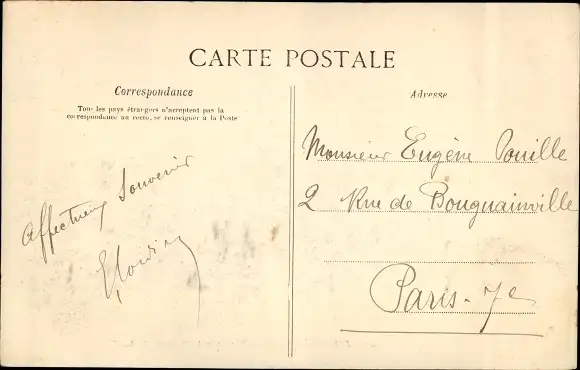 CARTE POSTALE
Correspondance
Tous les pays étrangers n'acceptent pas la
correspondance au recto, se renseigner à la Poste
Adresse
Affectueux Souvenir
Monsieur Eugène Pouille
2 Rue de Bouguainville
Paris-7e